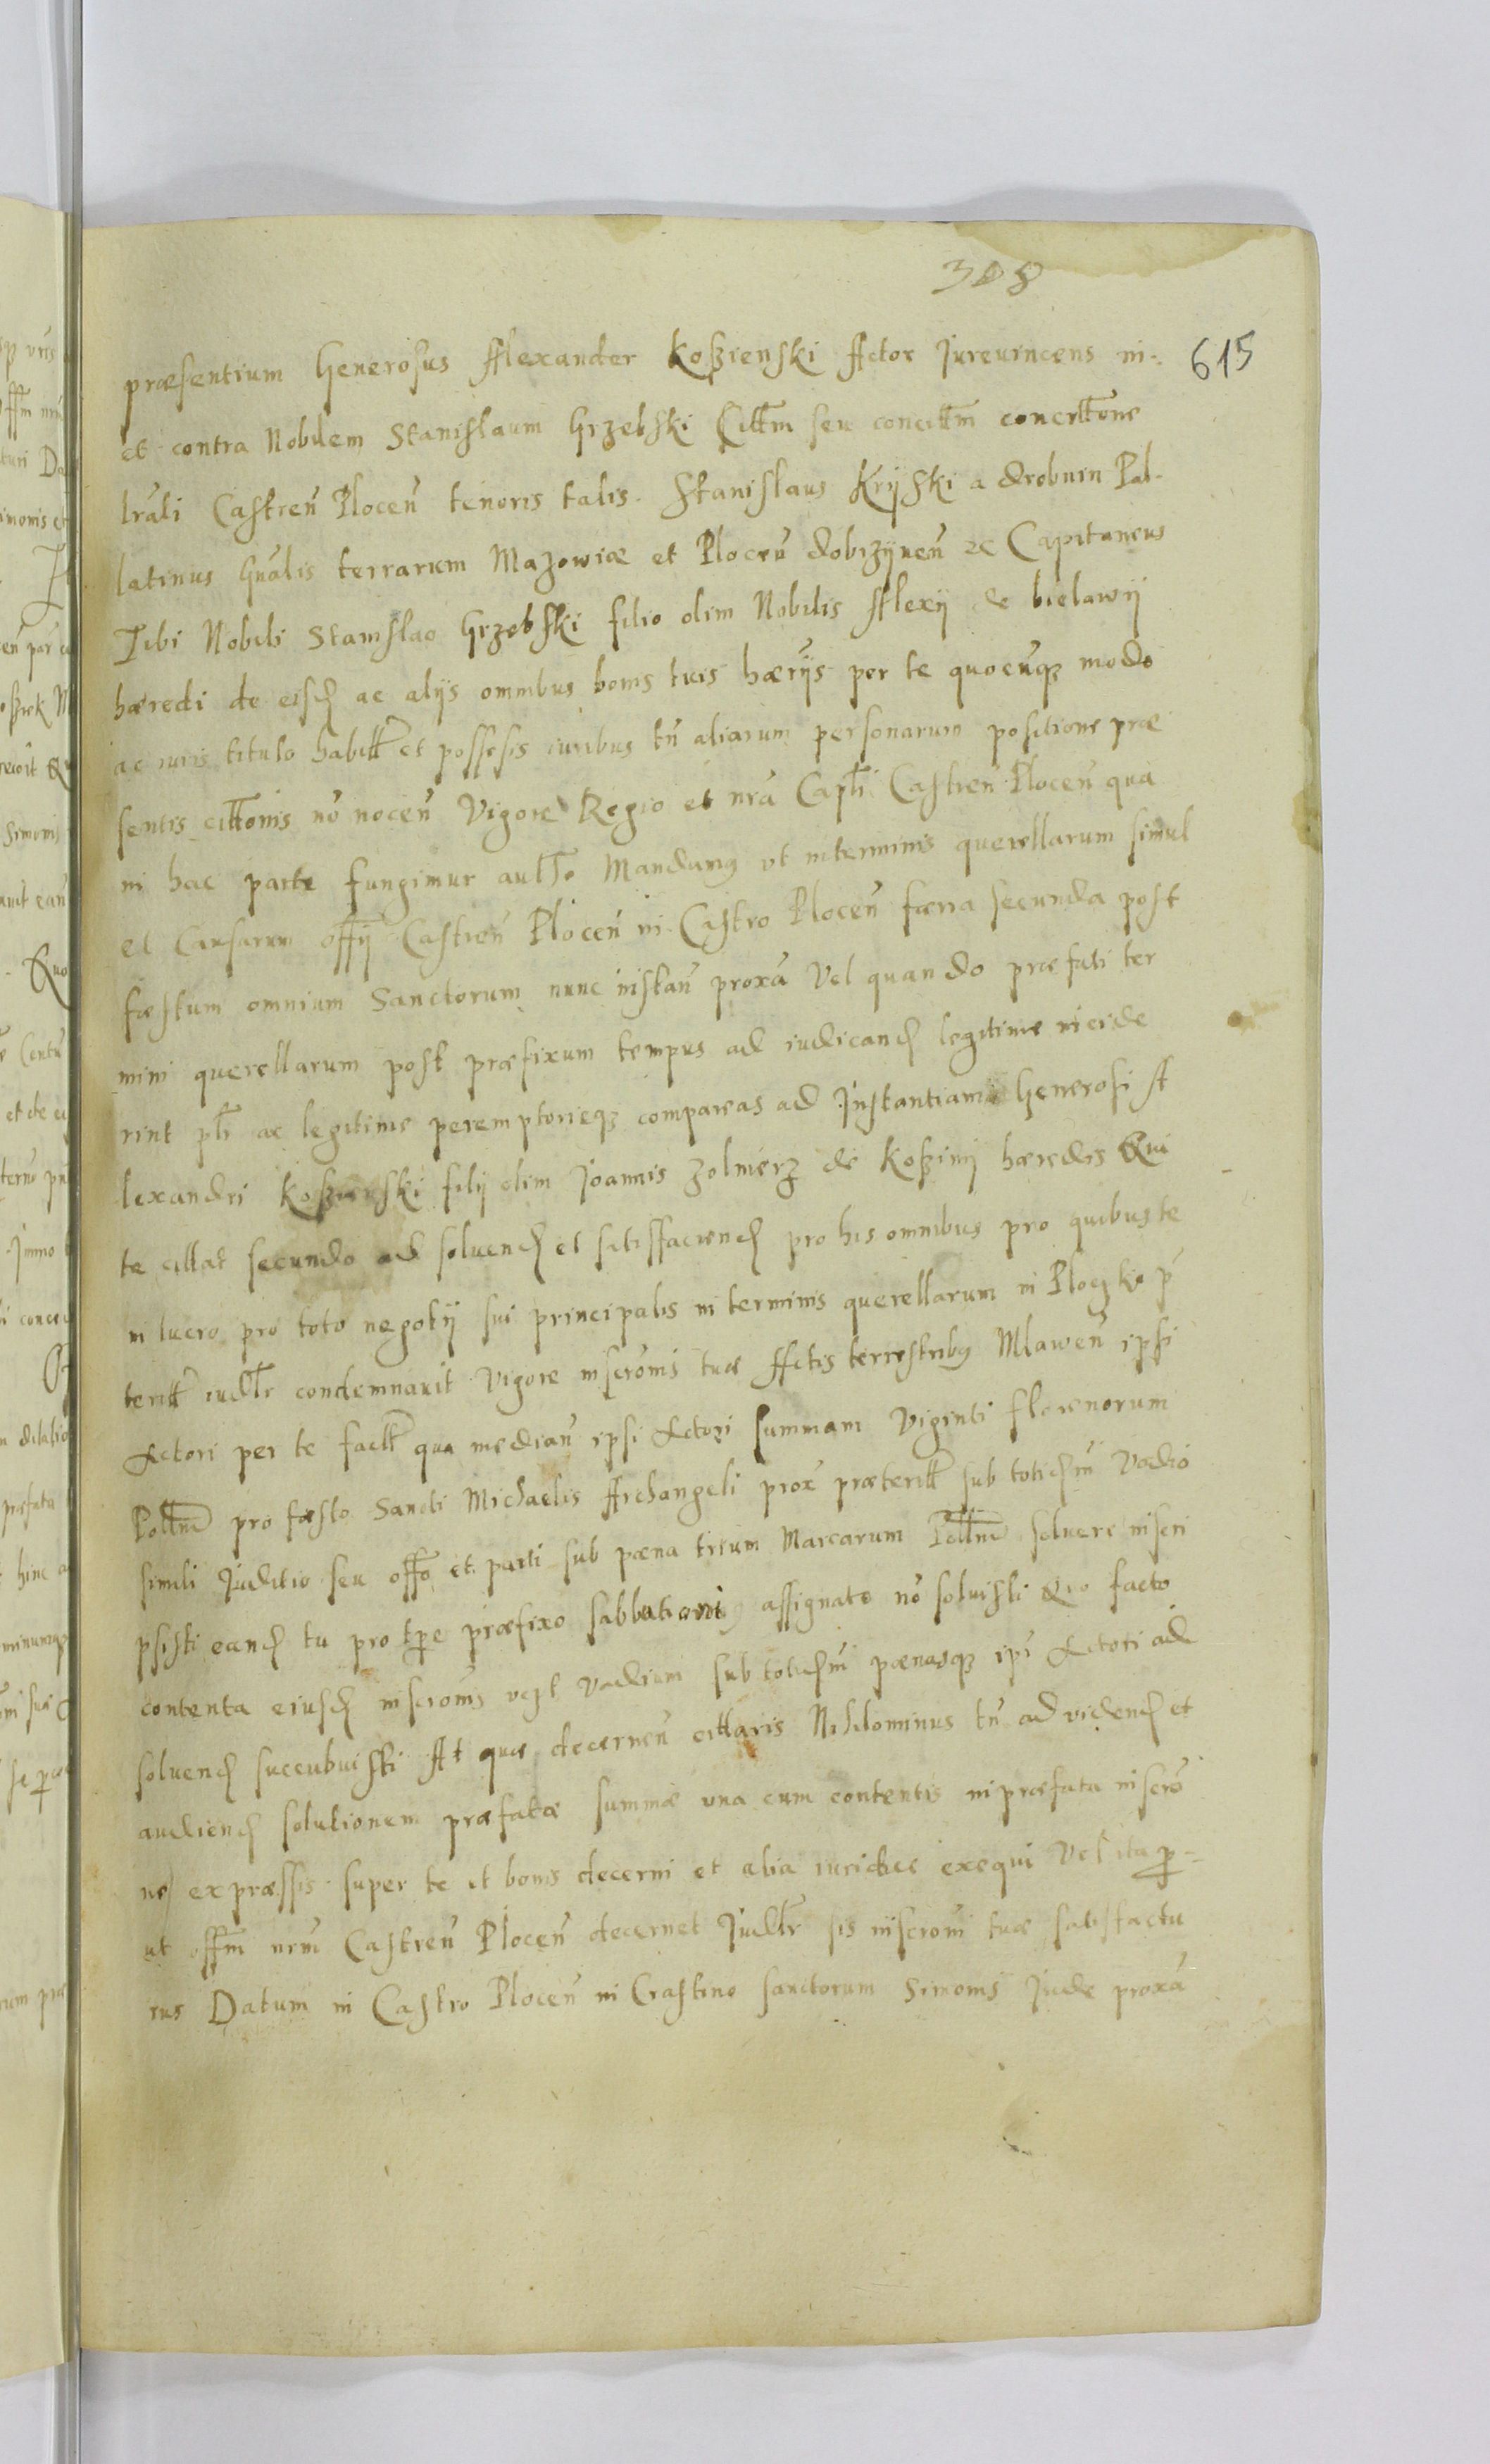 308
615
præsentium Generosus Alexander Koszienski Actor Jureuincens in
et contra Nobilem Stanislaum Grzebski Cittm seu concittm concittone
lrali Castren Plocen tenoris talis. Stanislaus Kryski a drobnin Pal-
latinus Gnalis terrarum Mazowiæ et Plocen dobrzynen &c Capitaneus
Tibi Nobili Stanislao Grzebski filio olim Nobilis Alexij de bielawij
hæredi de eisd ac alijs omnibus bonis tuis hærijs per te quocunq modo
ac iuris titulo habitt et possesis iuribus tn aliarum personarum positione præ
sentis cittonis no nocen Vigore Regio et nra Capli Castren Plocen qua
in hac parte fungimur autte Mandamq vt interminis querellarum simul
et Causarum offij Castren Plocen in Castro Plocen færia secunda post
fæstum omnium Sanctorum nunc instan proxa Vel quando præfati ter
mini querellarum post præfixum tempus ad iudicand legitime incide
rint plr ac legitime peremptorieq compareas ad Instantiam Generosi A
lexandri Koszienski filij olim Joannis Zolnierz de Koszinij hæredis Qui
te cittat secundo ad soluend et satisfaciend pro his omnibus pro quibus te
in lucro pro toto negotij sui principalis in terminis querellarum in Ploczko p
teritt iudltr condemnauit Vigore inscronis tuæ Actis terrestribq Mlawen ipsi
Actori per te factt qua median ipsi Actori summam Viginti florenorum
Polltm pro fæsto Sancti Michaelis Archangeli prox præteritt sub totidm Vadio
simili Juditio seu offo et parti sub pæna trium Marcarum Polltm soluere inscri
psisti eand tu pro tpre præfixo sabbationi assignato no soluisti Quo facto
contenta eiusd inscronis vczl vadium sub totidm pænasq ipi Actori ad
soluend succubuisti At quæ decernen cittaris Nihilominus tn ad vidend et
audiend solutionem præfatæ summæ vna cum contentis in præfata inscro
ne expræssis super te et bonis decerni et alia iuridice exequi Vel ita p-
ut offm nrm Castren Plocen decernet Judltr sis inscroni tuæ satisfactu
rus Datum in Castro Plocen in Crastino sanctorum Simonis Jude proxa